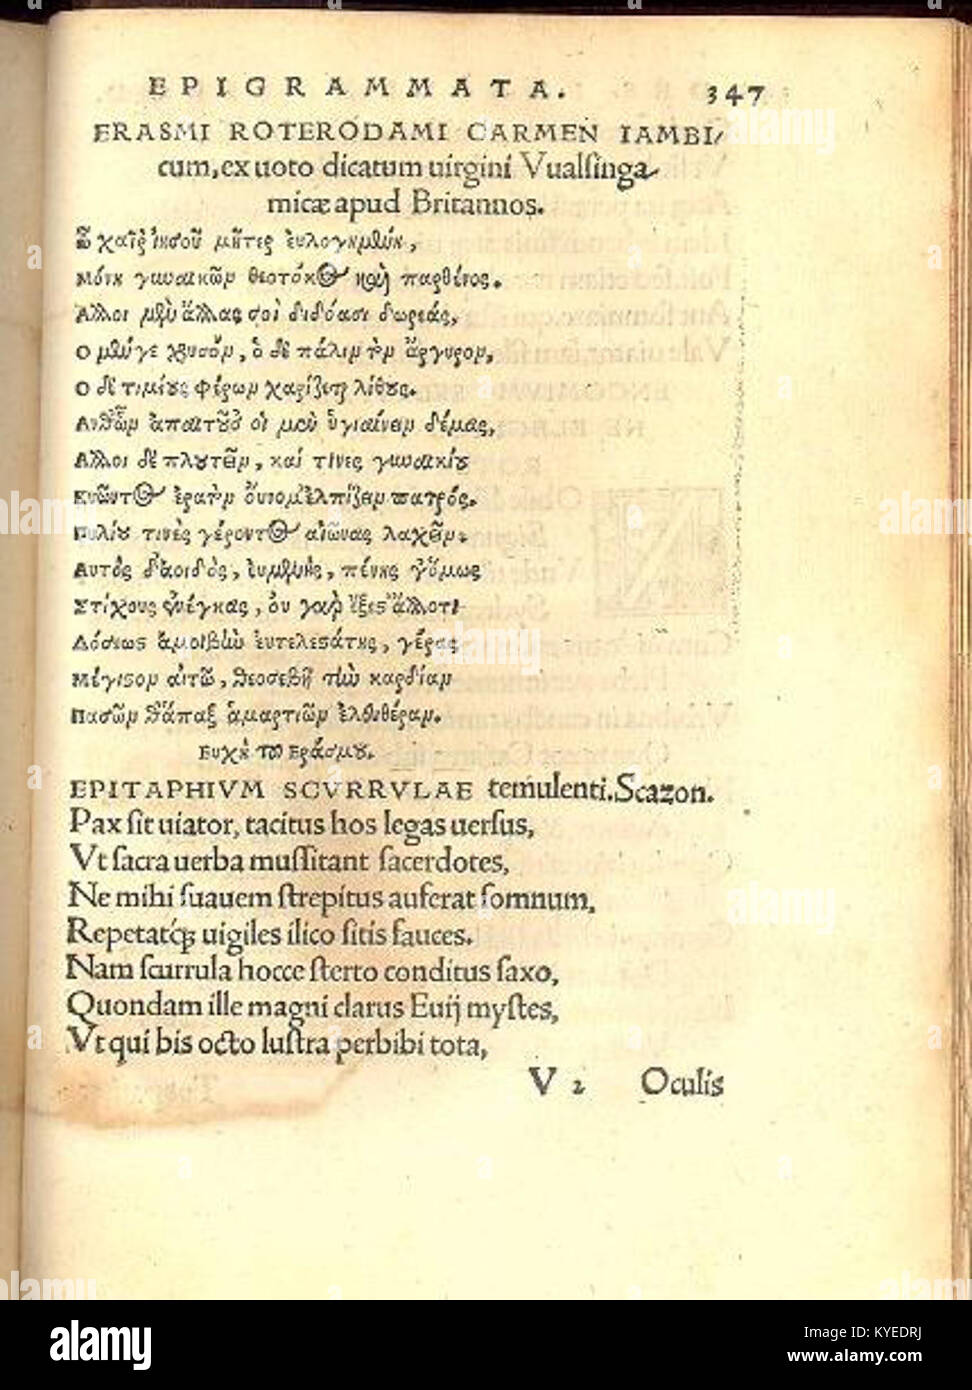 EPIGRAMMATA. 347
ERASMI ROTERODAMI CARMEN IAMBI/
cum, ex uoto dicatum uirgini Vualsinga/
micæ apud Britannos.
Ὦ χαῖρ᾽ ἰησοῦ μῆτερ εὐλογημένη,
Μόνη γυναικῶν θεοτόκος καὶ παρθένος.
Ἄλλοι μὲν ἄλλας σοὶ διδόασι δωρεάς,
Ο μέν γε χρυσὸν, ὁ δὲ πάλιν τὸν ἄργυρον,
Ο δὲ τιμίους φέρων χαρίζεται λίθους.
Ανθ᾽ ὧν ἀπαιτοῦσ᾽ οἱ μὲν ὑγιαίνειν δέμας,
Αλλοι δὲ πλουτεῖν, καί τινες γυναικίου
ἐρατὸν οὔνομ᾽ ἐλπίζειν πατρός.
Πυλίου τινὲς γέροντος αἰῶνας λαχεῖν.
Αυτὸς δ᾽ ἀοιδὸς, εὐμενὴς, πένης γ᾽ ὅμως
Στίχους ἐνέγκας, οὐ γὰρ ἔξεστ᾽ ἄλλο τι
Δόσεως ἀμοιβὴν εὐτελεστάτης, γέρας
Μέγιστον αἰτῶ, θεοσεβῆ τὴν καρδίαν
Πασῶν θ᾽ ἅπαξ ἁμαρτιῶν ἐλευθέραν.
Ευχὴ τοῦ Εράσμου.
EPITAPHIVM SCVRRVLAE temulenti. Scazon.
Pax sit uiator, tacitus hos legas uersus,
Vt sacra uerba mussitant sacerdotes,
Ne mihi suauem strepitus auferat somnum,
Repetatq́; uigiles ilico sitis fauces.
Nam scurrula hocce sterto conditus saxo,
Quondam ille magni clarus Euij mystes,
Vt qui bis octo lustra perbibi tota,
V 2 Oculis
alamy
Image ID: KYEDRJ
www.alamy.com